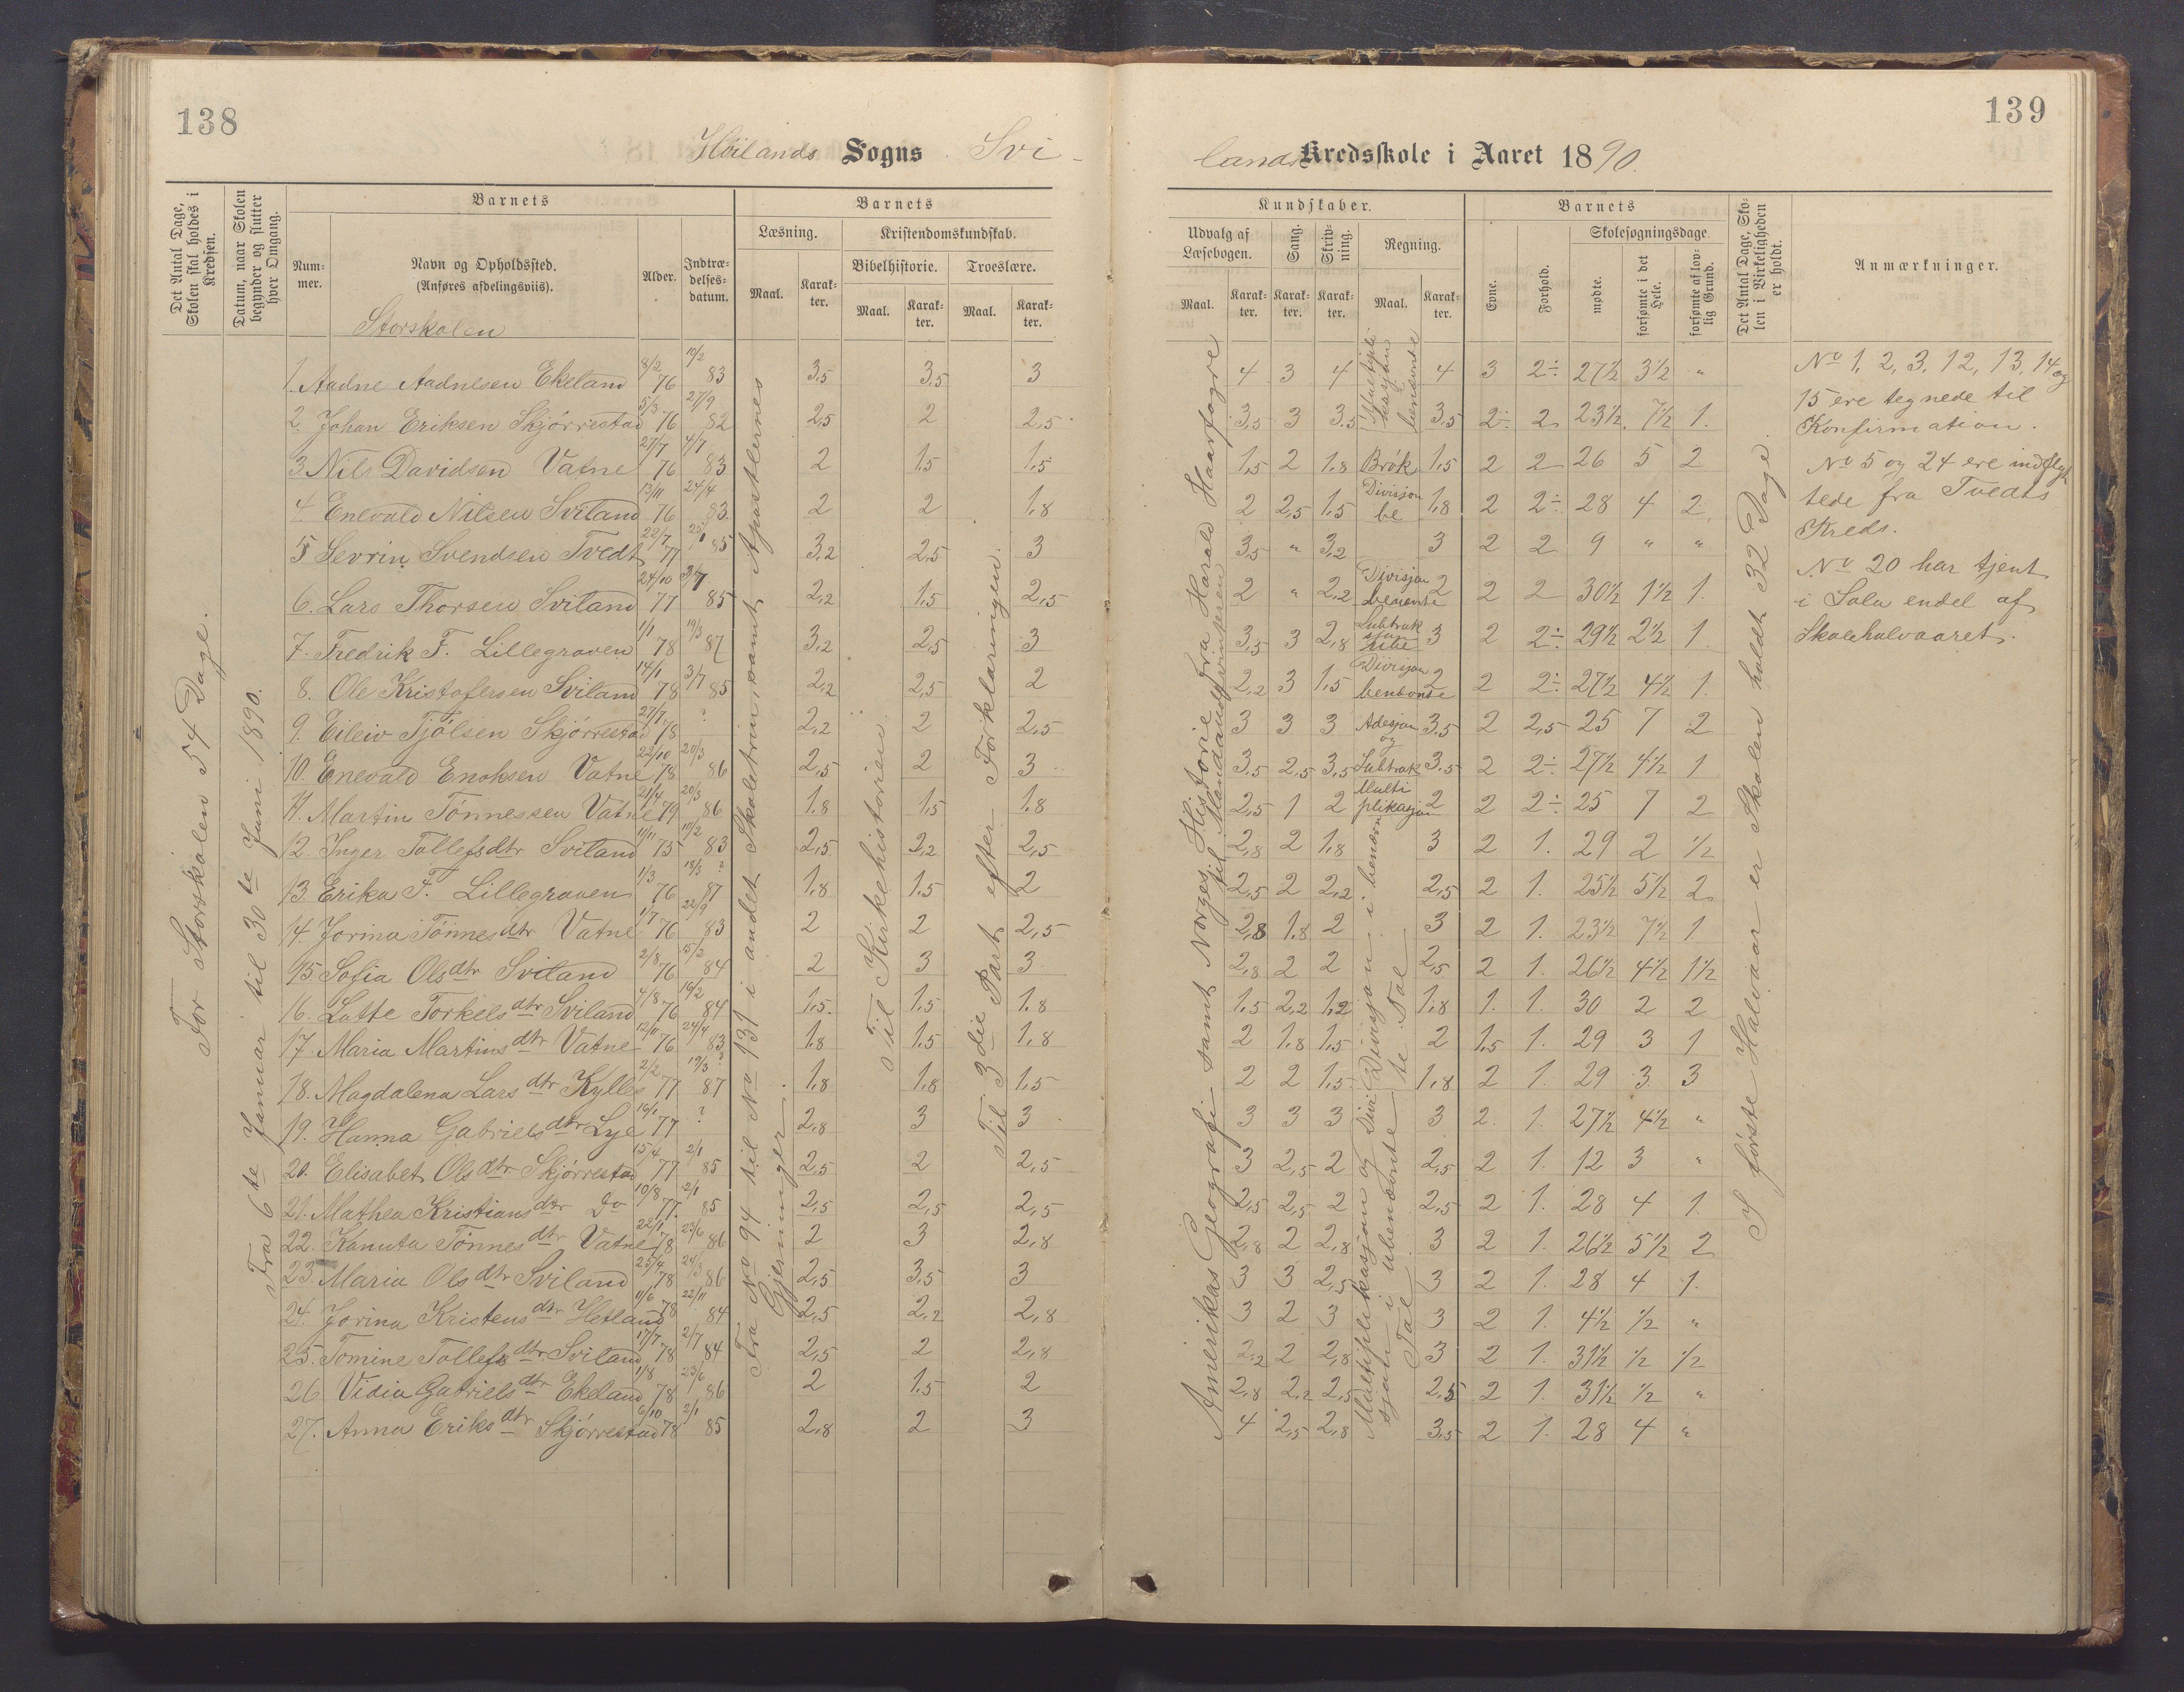 138
Höilands Sogns Svi-
Det Antal Dage, Skolen skal holdes i Kredsen.
Datum, naar Skolen begynder og slutter hver Omgang.
Barnets
Nummer.
Navn og Opholdssted.
(Anføres afdelingsviis).
Alder.
Indtrædelsesdatum.
Barnets
Læsning.
Maal.
Karakter.
Kristendomskundskab.
Bibelhistorie.
Maal.
Karakter.
Troeslære.
Maal.
Karakter.
For Storskolen 54 Dage.
Fra 6te Januar til 30te Juni 1890.
Fra No 94 til No 131 i andet Skoletrin, samt Apostlernes Gjerninger.
Til Kirkehistorien
Til 3die Part efter Forklaringen.
Storskolen
1. Aadne Aadnesen Ekeland 8/2 76 10/2 83 3,5 3,5 3
2. Johan Eriksen Skjörrestad 5/3 76 27/9 82 2,5 2 2,5
3. Nils Davidsen Vatne 27/7 76 4/7 83 2 1,5 1,5
4. Enevald Nilsen Sviland 13/11 76 24/4 83 2 2 1,8
5 Sevrin Svendsen Tvedt 22/7 77 85 3,2 2,5 3
6. Lars Thorsen Sviland 24/10 77 3/7 85 2,2 1,5 2,5
7. Fredrik F. Lillegraven 1/1 78 19/3 87 3,2 2,5 3
8. Ole Kristofersen Sviland 14/1 78 3/7 85 2,2 2,5 2
9. Eileiv Tjölsen Skjörrestad 27/7 78 ? 2,2 2 2,5
10. Enevald Enoksen Vatne 22/10 78 20/3 86 2,5 2 3
11. Martin Tönnessen Vatne 21/4 79 20/3 86 1,8 1,5 1,8
12. Inger Tollefsdtr Sviland 11/11 75 10/2 83 2,5 2,2 2,5
13. Erika F. Lillegraven 1/3 76 18/3 ? 87 1,8 1,5 2
14. Jorina Tönnesdtr Vatne 1/7 76 22/9 83 2 2 2,5
15. Sofia Olsdtr Sviland 2/8 76 15/2 84 2 3 3
16. Lotte Torkelsdtr Sviland 4/8 76 16/2 84 1,5 1,5 1,8
17. Maria Martinsdtr Vatne 12/11 76 24/4 83 1,8 1,5 1,8
18. Magdalena Larsdtr Kylles 2/2 77 19/3 ? 87 1,8 1,8 1,5
19. Hanna Gabrielsdtr Lye 16/1 77 ? 2,8 3 3
20. Elisabet Olsdtr Skjörrestad 15/4 77 2/1 85 2,5 2 2,5
21. Mathea Kristiansdtr Do 10/8 77 2/1 85 2,5 2,5 2,5
22. Kanuta Tönnesdtr Vatne 22/1 78 23/6 86 2 3 2,8
23. Maria Olsdtr Sviland 25/4 78 24/3 86 2,5 3,5 3
24. Jorina Kristensdtr Hetland 11/6 78 22/11 84 2,5 2,2 2,8
25. Tomine Tollefsdtr Sviland 17/7 78 2/7 84 2,5 2 2,8
26. Vidia Gabrielsdtr Ekeland 1/8 78 23/6 86 2 1,5 2
27. Anna Eriksdtr Skjörrestad 6/10 78 2/1 85 2,8 2 3
139
lands Kredsskole i Aaret 1890.
Kundskaber.
Udvalg af Læsebogen.
Maal.
Karakter.
Sang.
Karakter.
Skrivning.
Karakter.
Regning.
Maal.
Karakter.
Barnets
Evne.
Forhold.
Skolesøgningsdage.
mødte.
forsømte i det Hele.
forsømte af lovlig Grund.
Det Antal Dage, Skolen i Virkeligheden er holdt.
Anmærkninger.
Amerikas Geografi samt Norges Historie fra Harald Haarfagre
Multiplikasjon og Divisjon i ubenævnte Tal
I første Halvaar er Skolen holdt 32 Dage.
4 3 4 4 3 2÷ 27½ 3½ "
3,5 3 3,5 3,5 2÷ 2 23½ 7½ 1.
1,5 2 1,8 Brök 1,5 2 2 26 5 2
2 2,5 1,5 Divisjon be 1,8 2 2÷ 28 4 2
3,5 " 3,2 3 2 2 9 " "
2 " 2,2 Divisjon 2 2 2 30½ 1½ 1.
3,5 3 2,8 3 2 2÷ 29½ 2½ 1
2,2 3 1,5 Divisjon 2 2 2÷ 27½ 4½ 1.
3 3 3 Adesjon og 3,5 2 2,5 25 7 2
3,5 2,5 3,5 Subtrak 3,5 2 2÷ 27½ 4½ 1
2,5 1 2 Multiplikasjon 2 2 2÷ 25 7 2
2,8 2 1,8 3 2 1. 29 2 ½
2,5 2 2,2 2,5 2 1. 25½ 5½ 2
2,8 1,8 2 3 2 1. 23½ 7½ 1
2,8 2 2 2,5 2 1. 26½ 4½ 1½
1,5 2,2 1,2 1,8 1. 1. 30 2 2
2 1,8 1,5 2 1,5 1. 29 3 1
2 2 1,5 1,8 2 1. 29 3 3
3 3 3 3 2. 1. 27½ 4½ "
3 2,5 2 2,5 2 1. 12 3 "
2,5 2,5 2 2,5 2 1. 28 4 1.
2,8 2 2,8 3 2 1. 26½ 5½ 2
3 3 2,5 3 2 1. 28 4 1.
3 2 3 3 2 1. 4½ ½ "
2,2 2 2,8 3 2 1. 31½ ½ ½
2,8 2,2 2,5 2,5 2 1. 31½ ½ "
4 2,5 2,8 3,5 2 1. 28 4 "
No 1, 2, 3, 12, 13, 14 og
15 ere tegnede til
Konfirmation.
No 5 og 24 ere indflyt
tede fra Tvedts
Kreds.
No 20 har tjent
i Sola endel af
Skolehalvaaret.